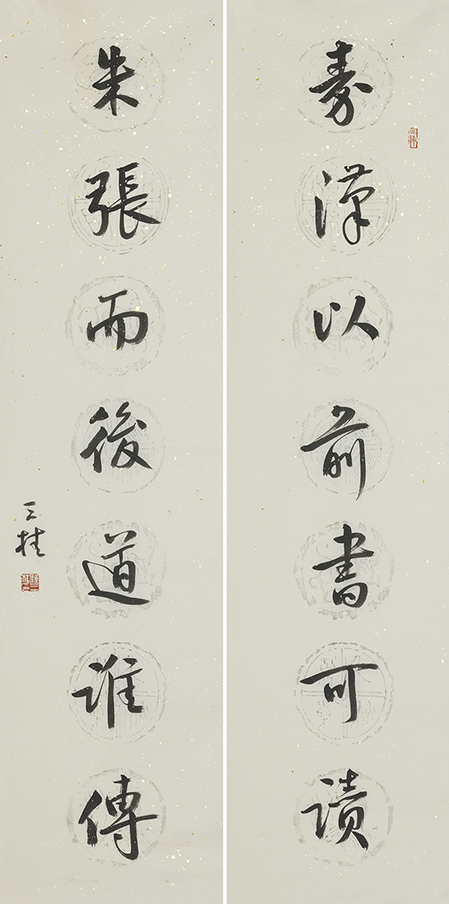 秦漢以前書可讀
朱張而後道誰傳